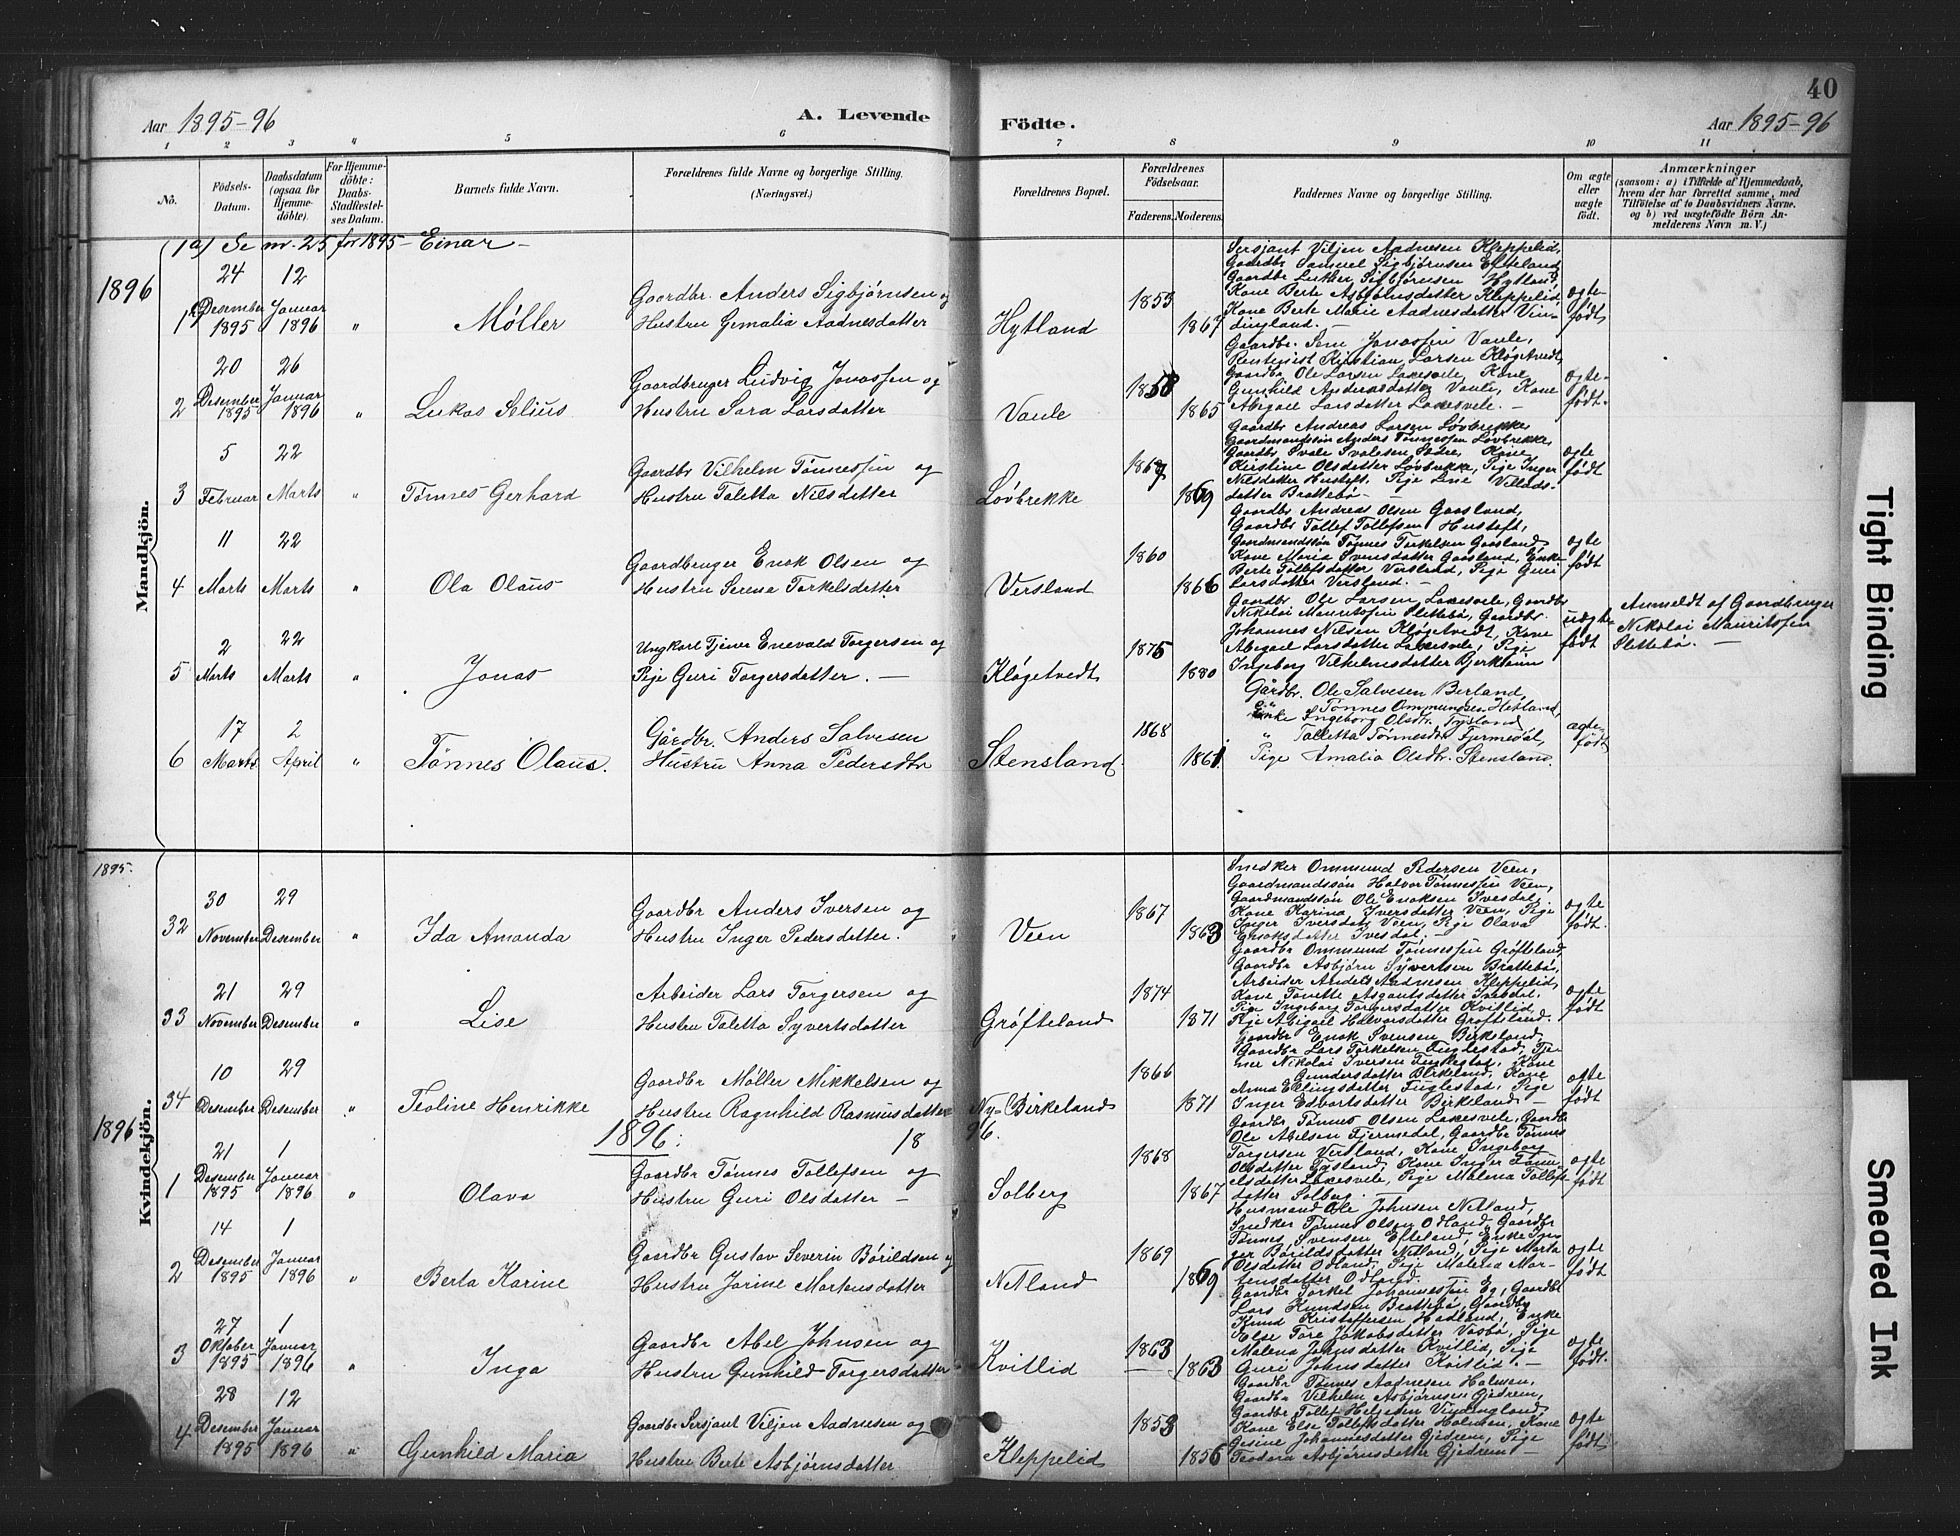 Aar 1895-96
A. Levende
Födte.
40
Aar 1895-96
1 2 3 4 5 6 7 8 9 10 11
No.
Födsels-Datum.
Daabsdatum (ogsaa for Hjemmedöbte).
For Hjemmedöbte: Daabs-Stadfæstelses Datum.
Barnets fulde Navn.
Forældrenes fulde Navne og borgerlige Stilling. (Næringsvei.)
Forældrenes Bopæl.
Forældrenes Födselsaar.
Faderens. Moderens.
Faddernes Navne og borgerlige Stilling.
Om ægte eller uægte födt.
Anmærkninger
(saasom: a) i Tilfælde af Hjemmedaab, hvem der har forrettet samme, med Tilföielse af to Daabsvidners Navne, og b) ved uægtefödte Börn Anmelderens Navn m. V.)
Mandkjön.
1a) Se nr. 25 for 1895 - Einar -
1896
1 24 Desember 1895 12 Januar 1896 " Møller
Gaardbr. Anders Sigbjørnsen og
Hustru Gemalia Aadnesdatter
Hytland 1855 1867
Sersjant Viljen Aadnesen Kleppelid,
Gaardbr Samuel Sigbjørnsen Efteland
Gaardbr Lukas Sigbjørnsen Hytland,
Kone Berte Asbjørnsdatter Kleppelid,
Kone Berte Marie Aadnesdatter Vin-
dingland. -
ægte født
2 20 Desember 1895 26 Januar 1896 " Lukas Selius
Gaardbruger Ludvig Jonassen og
Hustru Sara Larsdatter
Vaule 1858 1865
Gaardbr. Sem Jonassen Vaule,
Kristian Larsen Kløgetvedt,
Gaardbr Ole Larsen Laksesvele, Kone
Gunhild Andersdatter Vaule, Kone
Abigael Larsdatter Laksesvele. -
ægte-født.
3 5 Februar 22 Marts " Tønnes Gerhard
Gaardbr Vilhelm Tønnessen og
Hustru Taletta Nilsdatter
Løvbrekke 1867 1869
Gaardbr Andreas Larsen Løvbrekke,
Gaardmandssøn Anders Tønnessen Løvbrekke,
Gaardbr Svale Svalesen Kone
Kirstine Olsdatter Løvbrekke, Pige Inger
Nilsdatter Hustoft, Pige Line Villads-
datter Brattebø -
ægte født
4 11 Marts 22 Marts " Ola Olaus
Gaardbruger Enok Olsen og
Hustru Serena Torkelsdatter
Versland 1860 1866
Gaardbr Andreas Olsen Gaasland,
Gaardbr Tollef Tollefsen Hustoft,
Gaardmandssøn Tønnes Torkelsen Gaasland
Kone Maria Svensdatter Gaasland, Enke
Berte Tollefsdatter Versland, Pige Guri
Larsdatter Versland. -
ægte født
5 2 Marts 22 Marts " Jonas
Ungkarl Tjener Enevald Torgersen og
Pige Guri Torgersdatter. -
Kløgetvedt 1875 1880
Gaardbr Ole Larsen Laksesvele, Gaardbr
Nikolai Mauritssen Slettebø, Gaardbr.
Johannes Nilsen Kløgetvedt, Kone
Abigael Larsdatter Laksesvele, Pige
Ingeborg Vilhelmsdatter Bjerkheim
uægte-født
Anmeldt af Gaardbruger
Nikolai Mauritssen
Slettebø. -
6 17 Marts 2 April " Tønnes Olaus.
Gårdbr. Anders Salvesen
Hustru Anna Pedersdtr
Stensland. 1868 1861.
Gårdbr. Ole Salvesen Berland,
" Tønnes Ommundsen Hetland,
Enke Ingeborg Olsdtr. Tysland
" Taletta Tønnesdtr. Fjermedal,
Pige Amalia Olsdtr. Stensland.
ægte-født
Kvindekjön.
1895.
32 30 November 29 Desember " Ida Amanda
Gaardbr Anders Iversen og
Hustru Inger Pedersdatter.
Veen 1867 1863
Snedker Ommund Pedersen Veen,
Gaardmandssøn Halvor Tønnessen Veen,
Gaardmandssøn Ole Enoksen Ivesdal,
Kone Karina Iversdatter Veen, Pige
Inger Iversdatr Veen, Pige Olava
Enoksdatter Ivesdal. -
ægte født.
33 21 November 29 Desember " Lise
Arbeider Lars Torgersen og
Hustru Taletta Syvertsdatter
Grøfteland 1874 1871
Gaardbr Ommund Tønnessen Grøfteland,
Gaardbr Asbjørn Syvertsen Brattebø,
Arbeider Anders Aadnesen Kleppelid,
Kone Tonette Asgautsdatter Ivesdal,
Pige Ingeborg Torgersdatter Kvitlid,
Pige Abigael Halvorsdatter Grøfteland.
ægte født
34 10 Desember 29 Desember " Teoline Henrikke
Gaardbr Møller Mikkelsen og
Hustru Ragnhild Rasmusdatter
Ny-Birkeland 1866 1871
Gaardbr Enok Svensen Birkeland
Gaardbr Lars Torkelsen Fuglestad, Tje-
ner Nikolai Iversen Fuglestad, Kone
Gundersdatter Birkeland, Kone
Anna Ellingsdatter Fuglestad, Pige
Inger Edvartsdatter Birkeland -
ægte født
1896: 18 96.
1896
1 21 Desember 1895 1 Januar 1896 " Olava
Gaardbr Tønnes Tollefsen og
Hustru Guri Olsdatter -
Solberg 1868 1867
Gaardbr Tønnes Olsen Laksesvele, Gaardbr
Ole Abelsen Fjermedal, Gaardbr Tønnes
Torgersen Versland, Kone Ingeborg
Olsdatter Tysland, Kone Inger Tønn-
esdatter Laksesvele, Pige Malena Tollefs-
datter Solberg. -
ægte født
2 14 Desember 1895 1 Januar 1896 " Berta Karine
Gaardbr Gustav Severin Bårildsen og
Hustru Jorine Martensdatter
Netland 1869 1869
Husmand Ole Johnsen Netland,
Snedker Tønnes Olsen Odland, Gaardbr
Tønnes Svensen Efteland, Enke In-
ger Bårildsdatter Netland, Pige Marta
Olsdatter Odland, Pige Malena Mar-
tensdatter Odland.
ægte født
3 27 Oktober 1895 1 Januar 1896 " Inga
Gaardbr Abel Johnsen og
Hustru Gunhild Torgersdatter
Kvitlid 1863 1863
Gaardbr Torkel Johannessen Eg, Gaardbr
Lars Knudsen Brattebø, Gaardbr
Knud Kristoffersen Hadland, Enke
Else Tore Jakobsdatter Vasbø, Pige
Malena Johnsdatter Kvitlid, Pige
Guri Johnsdatter Kvitlid. -
ægte født.
4 28 Desember 1895 12 Januar 1896 " Gunhild Maria
Gaardbr Sersjant Viljen Aadnesen og
Hustru Berte Asbjørnsdatter
Kleppelid 1853 1856
Gaardbr Tønnes Aadnesen Holmen,
Gaardbr Vilhelm Asbjørnsen Gjedrem,
Gaardbr Tollef Helgesen Vindingland
Kone Else Tollefsdatter Holmen, Kone
Gesine Johannesdatter Gjedrem, Pige
Teodora Asbjørnsdatter Gjedrem -
ægte født
Tight Binding
Smeared Ink